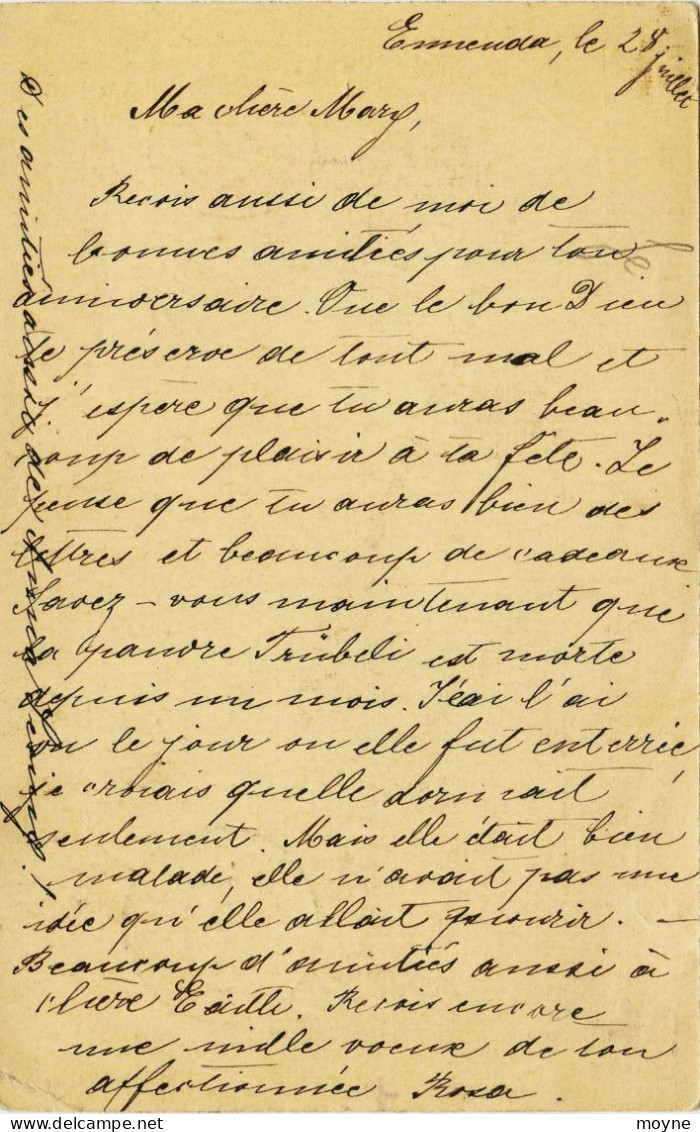 Ennenda, le 28 juillet
Ma chère Mary,
Reçois aussi de moi de
bonnes amitiés pour ton
anniversaire. Que le bon Dieu
te préserve de tout mal et
j'espère que tu auras beau-
coup de plaisir à ta fête. Je
pense que tu auras bien des
lettres et beaucoup de cadeaux
Savez-vous maintenant que
la pauvre Trübeli est morte
depuis un mois. Je l'ai
vu le jour ou elle fut enterrié,
je croiais quelle dormait
seulement. Mais elle était bien
malade, elle n'avait pas une
idée qu'elle allait mourir. —
Beaucoup d'amitiés aussi à
chère Edith. Reçois encore
une mille voeux de ton
affectionnée Rosa.
Des amitiés aussi de
moyne